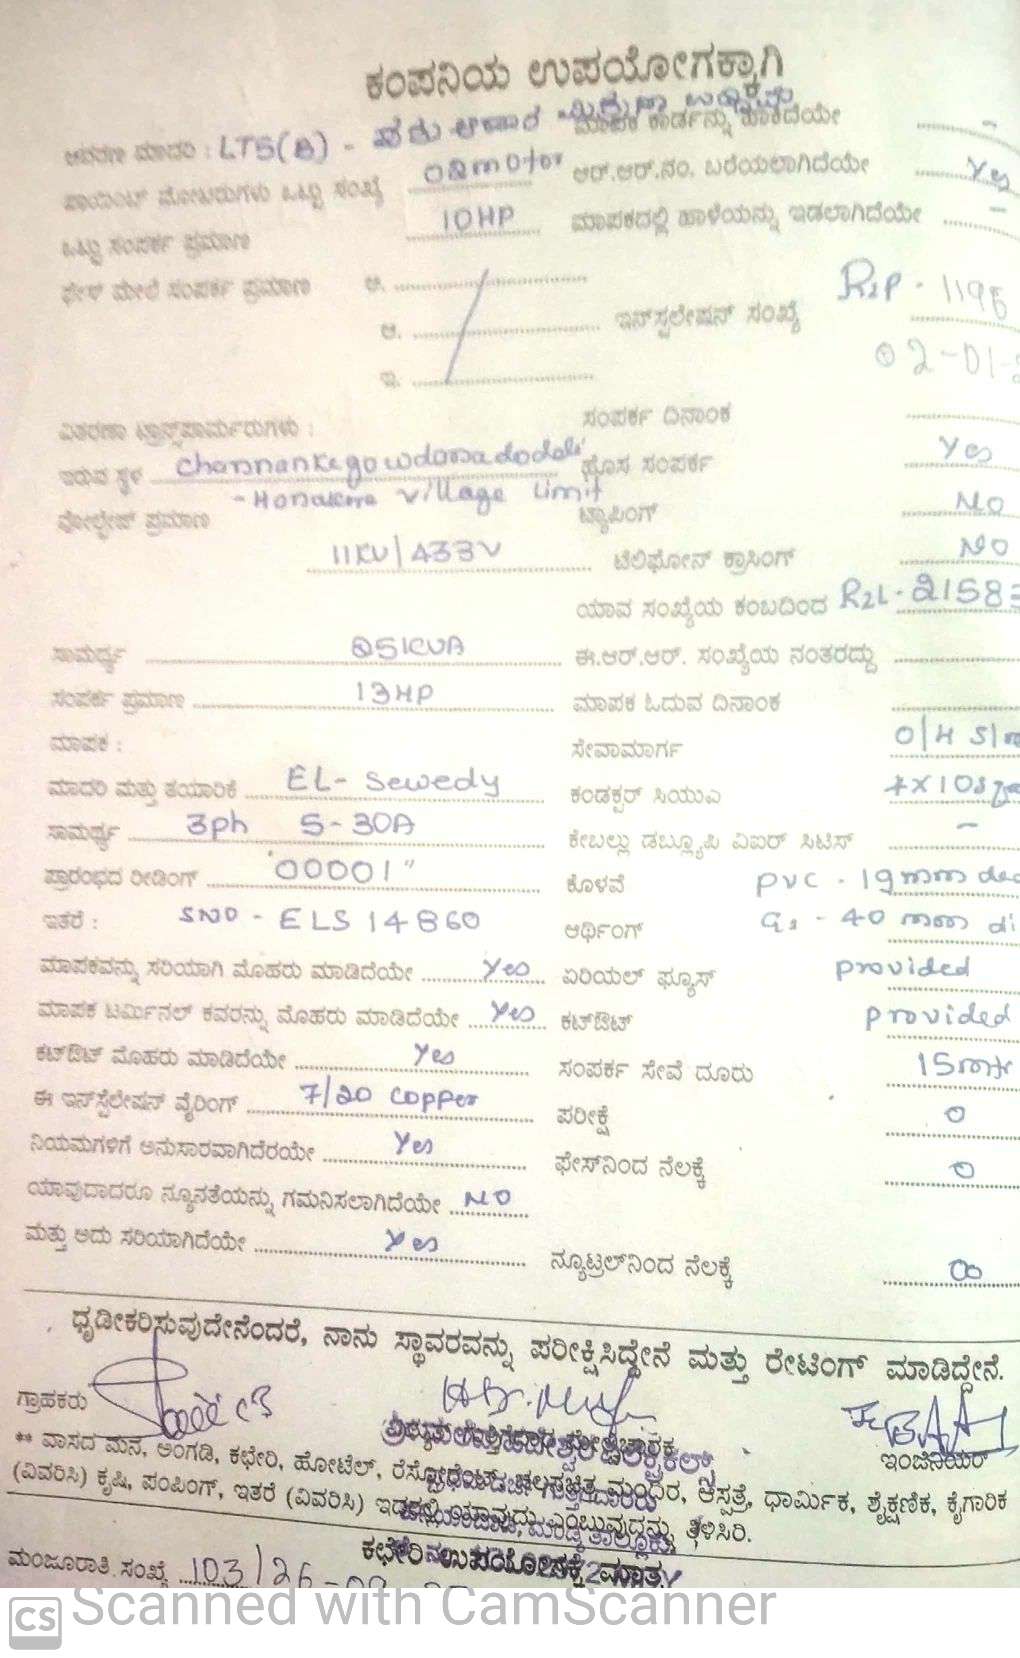 ಕಂಪನಿಯ ಉಪಯೋಗಕ್ಕಾಗಿ
ಮಾದರಿ : LT5(B) - ಮಾಪಕ ಕಾರ್ಡನ್ನು ಹಾಕಿದೆಯೇ -
ಪಾಯಿಂಟ್ ಮೋಟರುಗಳು ಒಟ್ಟು ಸಂಖ್ಯೆ 02motor ಆರ್.ಆರ್.ನಂ. ಬರೆಯಲಾಗಿದೆಯೇ Yes
ಒಟ್ಟು ಸಂಪರ್ಕ ಪ್ರಮಾಣ 10HP ಮಾಪಕದಲ್ಲಿ ಹಾಳೆಯನ್ನು ಇಡಲಾಗಿದೆಯೇ -
ಮೇಲೆ ಸಂಪರ್ಕ ಪ್ರಮಾಣ ಅ.
ಆ. ಇನ್‌ಸ್ಟಲೇಷನ್ ಸಂಖ್ಯೆ R2P - 1195
ಇ. 02-01-
ವಿತರಣಾ ಟ್ರಾನ್ಸ್‌ಫಾರ್ಮರುಗಳು : ಸಂಪರ್ಕ ದಿನಾಂಕ
ಇರುವ ಸ್ಥಳ Channankegowdanadoddi ಹೊಸ ಸಂಪರ್ಕ Yes
- village limit ಟ್ಯಾಪಿಂಗ್ NO
ವೋಲ್ಟೇಜ್ ಪ್ರಮಾಣ 11KV/433V ಟೆಲಿಫೋನ್ ಕ್ರಾಸಿಂಗ್ NO
ಯಾವ ಸಂಖ್ಯೆಯ ಕಂಬದಿಂದ R2L - 2158
ಸಾಮರ್ಥ್ಯ 25KVA ಈ.ಆರ್.ಆರ್. ಸಂಖ್ಯೆಯ ನಂತರದ್ದು
ಸಂಪರ್ಕ ಪ್ರಮಾಣ 13HP ಮಾಪಕ ಓದುವ ದಿನಾಂಕ
ಮಾಪಕ : ಸೇವಾಮಾರ್ಗ O/H S/m
ಮಾದರಿ ಮತ್ತು ತಯಾರಿಕೆ EL- Sewedy ಕಂಡಕ್ಟರ್ ಸಿಯುಎ
ಸಾಮರ್ಥ್ಯ 3ph 5-30A ಕೇಬಲ್ಲು ಡಬ್ಲ್ಯೂಪಿ ವಿಐರ್ ಸಿಟಿಸ್ -
ಪ್ರಾರಂಭದ ರೀಡಿಂಗ್ "00001" ಕೊಳವೆ PVC - 19mm
ಇತರೆ : SNO - ELS 14860 ಆರ್ಥಿಂಗ್ - 40 mm di
ಮಾಪಕವನ್ನು ಸರಿಯಾಗಿ ಮೊಹರು ಮಾಡಿದೆಯೇ Yes ಏರಿಯಲ್ ಫ್ಯೂಸ್ provided
ಮಾಪಕ ಟರ್ಮಿನಲ್ ಕವರನ್ನು ಮೊಹರು ಮಾಡಿದೆಯೇ Yes ಕಟ್‌ಔಟ್ provided
ಕಟ್‌ಔಟ್ ಮೊಹರು ಮಾಡಿದೆಯೇ Yes ಸಂಪರ್ಕ ಸೇವೆ ದೂರು 15mtr
ಈ ಇನ್‌ಸ್ಟಲೇಷನ್ ವೈರಿಂಗ್ 7/20 copper ಪರೀಕ್ಷೆ 0
ನಿಯಮಗಳಿಗೆ ಅನುಸಾರವಾಗಿದೆರಯೇ Yes ಫೇಸ್‌ನಿಂದ ನೆಲಕ್ಕೆ 0
ಯಾವುದಾದರೂ ನ್ಯೂನತೆಯನ್ನು ಗಮನಿಸಲಾಗಿದೆಯೇ NO
ಮತ್ತು ಅದು ಸರಿಯಾಗಿದೆಯೇ Yes ನ್ಯೂಟ್ರಲ್‌ನಿಂದ ನೆಲಕ್ಕೆ ∞
ಧೃಡೀಕರಿಸುವುದೇನೆಂದರೆ, ನಾನು ಸ್ಥಾವರವನ್ನು ಪರೀಕ್ಷಿಸಿದ್ದೇನೆ ಮತ್ತು ರೇಟಿಂಗ್ ಮಾಡಿದ್ದೇನೆ.
ಗ್ರಾಹಕರು ಇಂಜಿನಿಯರ್
** ವಾಸದ ಮನೆ, ಅಂಗಡಿ, ಕಛೇರಿ, ಹೋಟೆಲ್, ರೆಸ್ಟೋರೆಂಟ್, ಚಲನಚಿತ್ರ ಮಂದಿರ, ಆಸ್ಪತ್ರೆ, ಧಾರ್ಮಿಕ, ಶೈಕ್ಷಣಿಕ, ಕೈಗಾರಿಕ
(ವಿವರಿಸಿ) ಕೃಷಿ, ಪಂಪಿಂಗ್, ಇತರೆ (ವಿವರಿಸಿ) ಇದರಲ್ಲಿ ಯಾವುದು ಎಂಬುವುದನ್ನು ತಿಳಿಸಿರಿ.
ಕಛೇರಿ ಉಪಯೋಗಕ್ಕೆ ಮಾತ್ರ
ಮಂಜೂರಾತಿ ಸಂಖ್ಯೆ 103/26
CS Scanned with CamScanner